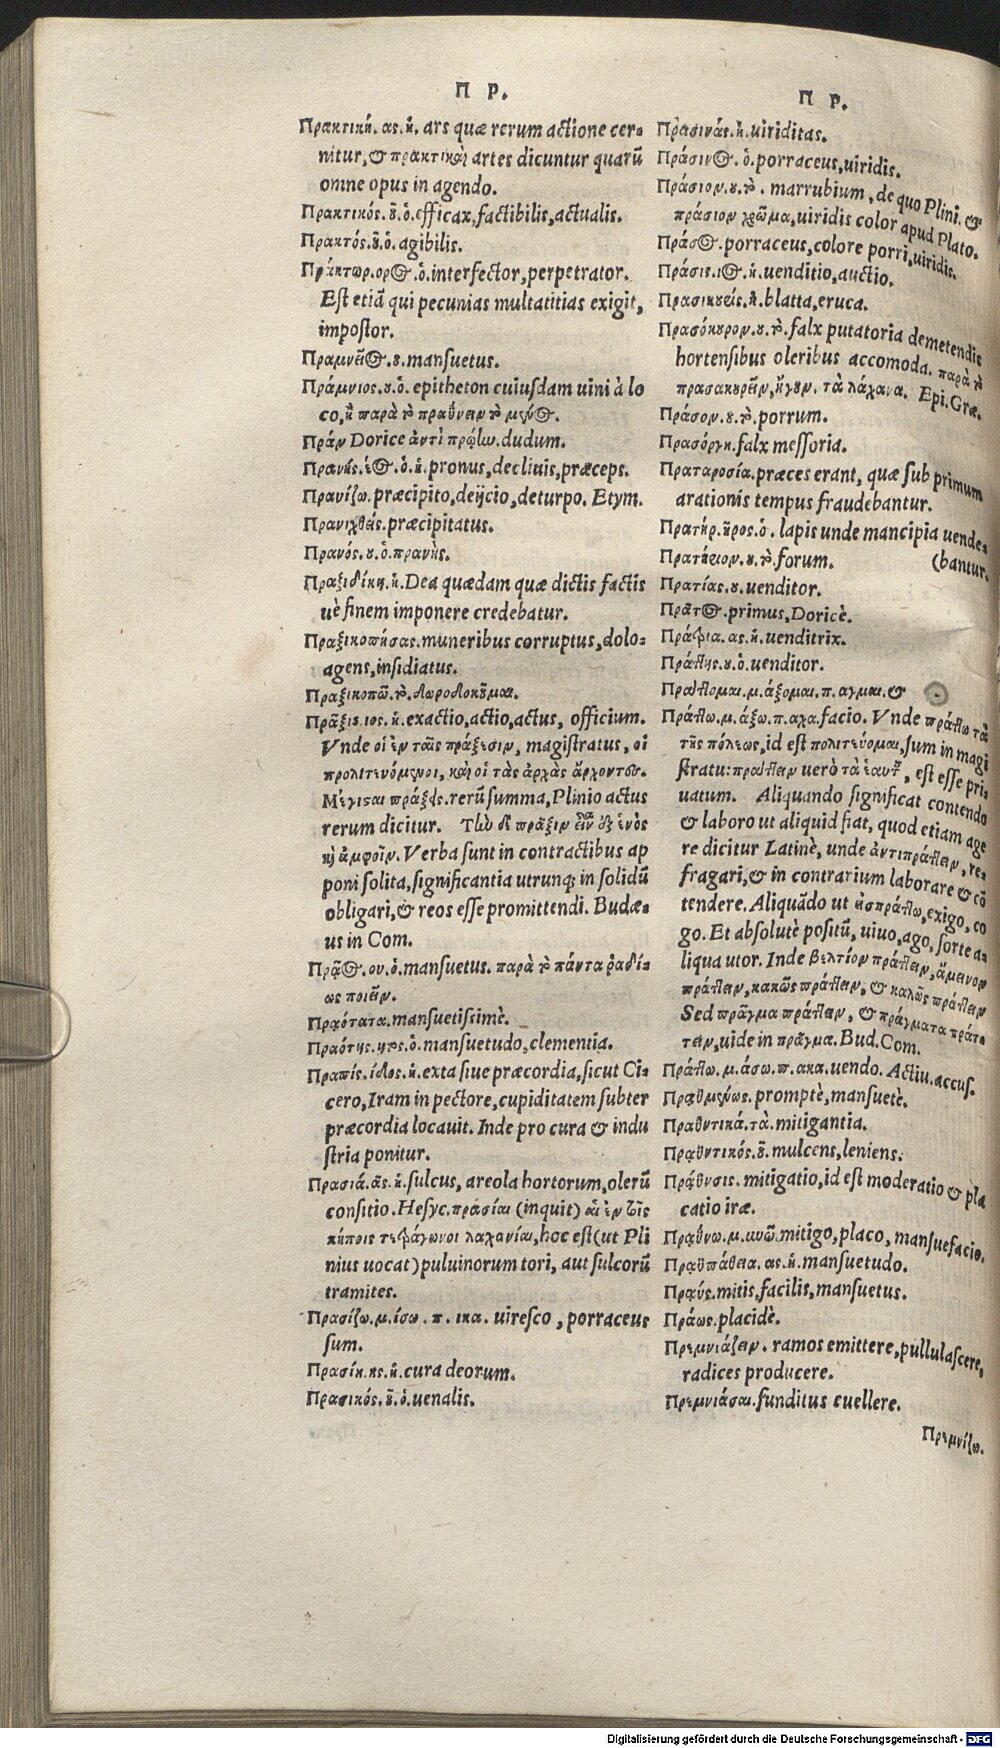 Π Ρ.
Πρακτική. ας. ἡ. ars quæ rerum actione cer-
nitur, & πρακτικαὶ artes dicuntur quarū
omne opus in agendo.
Πρακτικός. οῦ. ὁ. efficax, factibilis, actualis.
Πρακτός. οῦ. ὁ. agibilis.
Πράκτωρ. ορος. ὁ. interfector, perpetrator.
Est etiā qui pecunias multatitias exigit,
impostor.
Πραμνεῖος. ου. mansuetus.
Πράμνιος. ου. ὁ. epitheton cuiusdam uini à lo
co, ἢ παρὰ τὸ πραΰνειν τὸ μένος.
Πράν Dorice ἀντὶ πρώην. dudum.
Πρανής. έος. ὁ. ἡ. pronus, decliuis, præceps.
Πρανίζω. præcipito, deijcio, deturpo. Etym.
Πρανιχθείς. præcipitatus.
Πρανός. ου. ὁ. πρανὴς.
Πραξιδίκη. ἡ. Dea quædam quæ dictis factis
uè finem imponere credebatur.
Πραξικοπήσας. muneribus corruptus, dolo-
agens, insidiatus.
Πραξικοπῶ. τὸ. δωροδοκοῦμαι.
Πρᾶξις. ιος. ἡ. exactio, actio, actus, officium.
Vnde οἱ ἐν ταῖς πράξεσιν, magistratus, οἱ
προλιτευόμενοι, καὶ οἱ τὰς ἀρχὰς ἄρχοντες.
Μέγισται πράξεις. rerū summa, Plinio actus
rerum dicitur. Τὴν δὲ πρᾶξιν εἶναι ἐξ ἑνὸς
κἠ ἀμφοῖν. Verba sunt in contractibus ap
poni solita, significantia utrunq; in solidū
obligari, & reos esse promittendi. Budæ-
us in Com.
Πρᾶος. ου. ὁ. mansuetus. παρὰ τὸ πάντα ῥαδί-
ως ποιεῖν.
Πραότατα. mansuetissimè.
Πραότης. ητος. ὁ. mansuetudo, clementia.
Πραπίς. ίδος. ἡ. exta siue præcordia, sicut Ci-
cero, Iram in pectore, cupiditatem subter
præcordia locauit. Inde pro cura & indu
stria ponitur.
Πρασιά. ᾶς. ἡ. sulcus, areola hortorum, olerū
consitio. Hesyc. πρασίαι (inquit) αἱ ἐν τοῖς
κήποις τετράγωνοι λαχανίαι, hoc est (ut Pli
nius uocat) puluinorum tori, aut sulcorū
tramites.
Πρασίζω. μ. ίσω. π. ικα. uiresco, porraceus
sum.
Πρασίκ. κς. ἡ. cura deorum.
Πρασικός. οῦ. ὁ. uenalis.
Π Ρ.
Πρασινάς. ἡ. uiriditas.
Πράσινος. ὁ. porraceus, uiridis.
Πράσιον. ου. τὸ. marrubium, de quo Plini. &
πράσιον χρῶμα, uiridis color apud Plato.
Πράσος. porraceus, colore porri, uiridis.
Πράσις. ιος. ἡ. uenditio, auctio.
Πρασικουείς. ἡ. blatta, eruca.
Πρασόκουρον. ου. τὸ. falx putatoria demetendis
hortensibus oleribus accomoda. παρὰ τὸ
πρασακουρεῖν, ἤγουν. τὰ λάχανα. Epi. Græ.
Πράσον. ου. τὸ. porrum.
Πρασόργη. falx messoria.
Πραταροσία. præces erant, quæ sub primum
arationis tempus fraudebantur.
Πρατήρ. ῆρος. ὁ. lapis unde mancipia uende-
Πρατήειον. ου. τὸ. forum. (bantur.
Πρατίας. ου. uenditor.
Πρᾶτος. primus, Doricè.
Πράτρια. ας. ἡ. uenditrix.
Πράτης. ου. ὁ. uenditor.
Πράττομαι. μ. άξομαι. π. αγμαι. &
Πράττω. μ. άξω. π. αχα. facio. Vnde πράττω τὰ
τῆς πόλεως, id est πολιτεύομαι, sum in magi
stratu: πράττειν uerò τὰ ἑαυτοῦ, est esse pri-
uatum. Aliquando significat contendo
& laboro ut aliquid fiat, quod etiam age
re dicitur Latinè, unde ἀντιπράττειν, re-
fragari, & in contrarium laborare & cō
tendere. Aliquādo ut εἰσπράττω, exigo, co
go. Et absolutè positū, uiuo, ago, sorte a-
liqua utor. Inde βελτίον πράττειν, ἄμεινον
πράττειν, κακῶς πράττειν, & καλῶς πράττειν
Sed πρᾶγμα πράττειν, & πράγματα πράτ-
τειν, uide in πρᾶγμα. Bud. Com.
Πράττω. μ. άσω. π. ακα. uendo. Actiu. accus.
Πραϋμένως. promptè, mansuetè.
Πραϋντικά. τὰ. mitigantia.
Πραϋντικός. οῦ. mulcens, leniens.
Πράϋνσις. mitigatio, id est moderatio & pla
catio iræ.
Πραΰνω. μ. αυνῶ. mitigo, placo, mansuefacio.
Πραϋπάθεια. ας. ἡ. mansuetudo.
Πραΰς. mitis, facilis, mansuetus.
Πράως. placidè.
Πρεμνιάζειν. ramos emittere, pullulascere,
radices producere.
Πρεμνιάσαι. funditus euellere.
Πρεμνίζω.
Digitalisierung gefördert durch die Deutsche Forschungsgemeinschaft - DFG